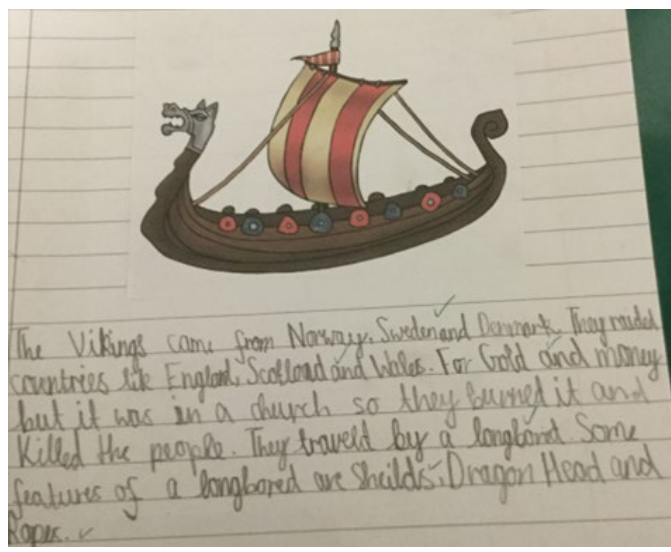 The Vikings came from Norway, Sweden and Denmark. They raided
countries like England, Scotland and Wales. For Gold and money
but it was in a church so they burned it and
Killed the people. They traveld by a longbord. Some
features of a longbored are Sheilds, Dragon Head and
Ropes.